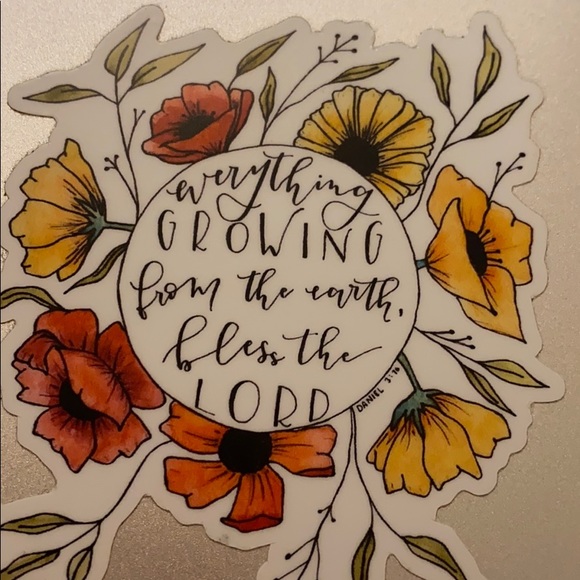 everything
GROWING
from the earth,
bless the
LORD
DANIEL 3:76